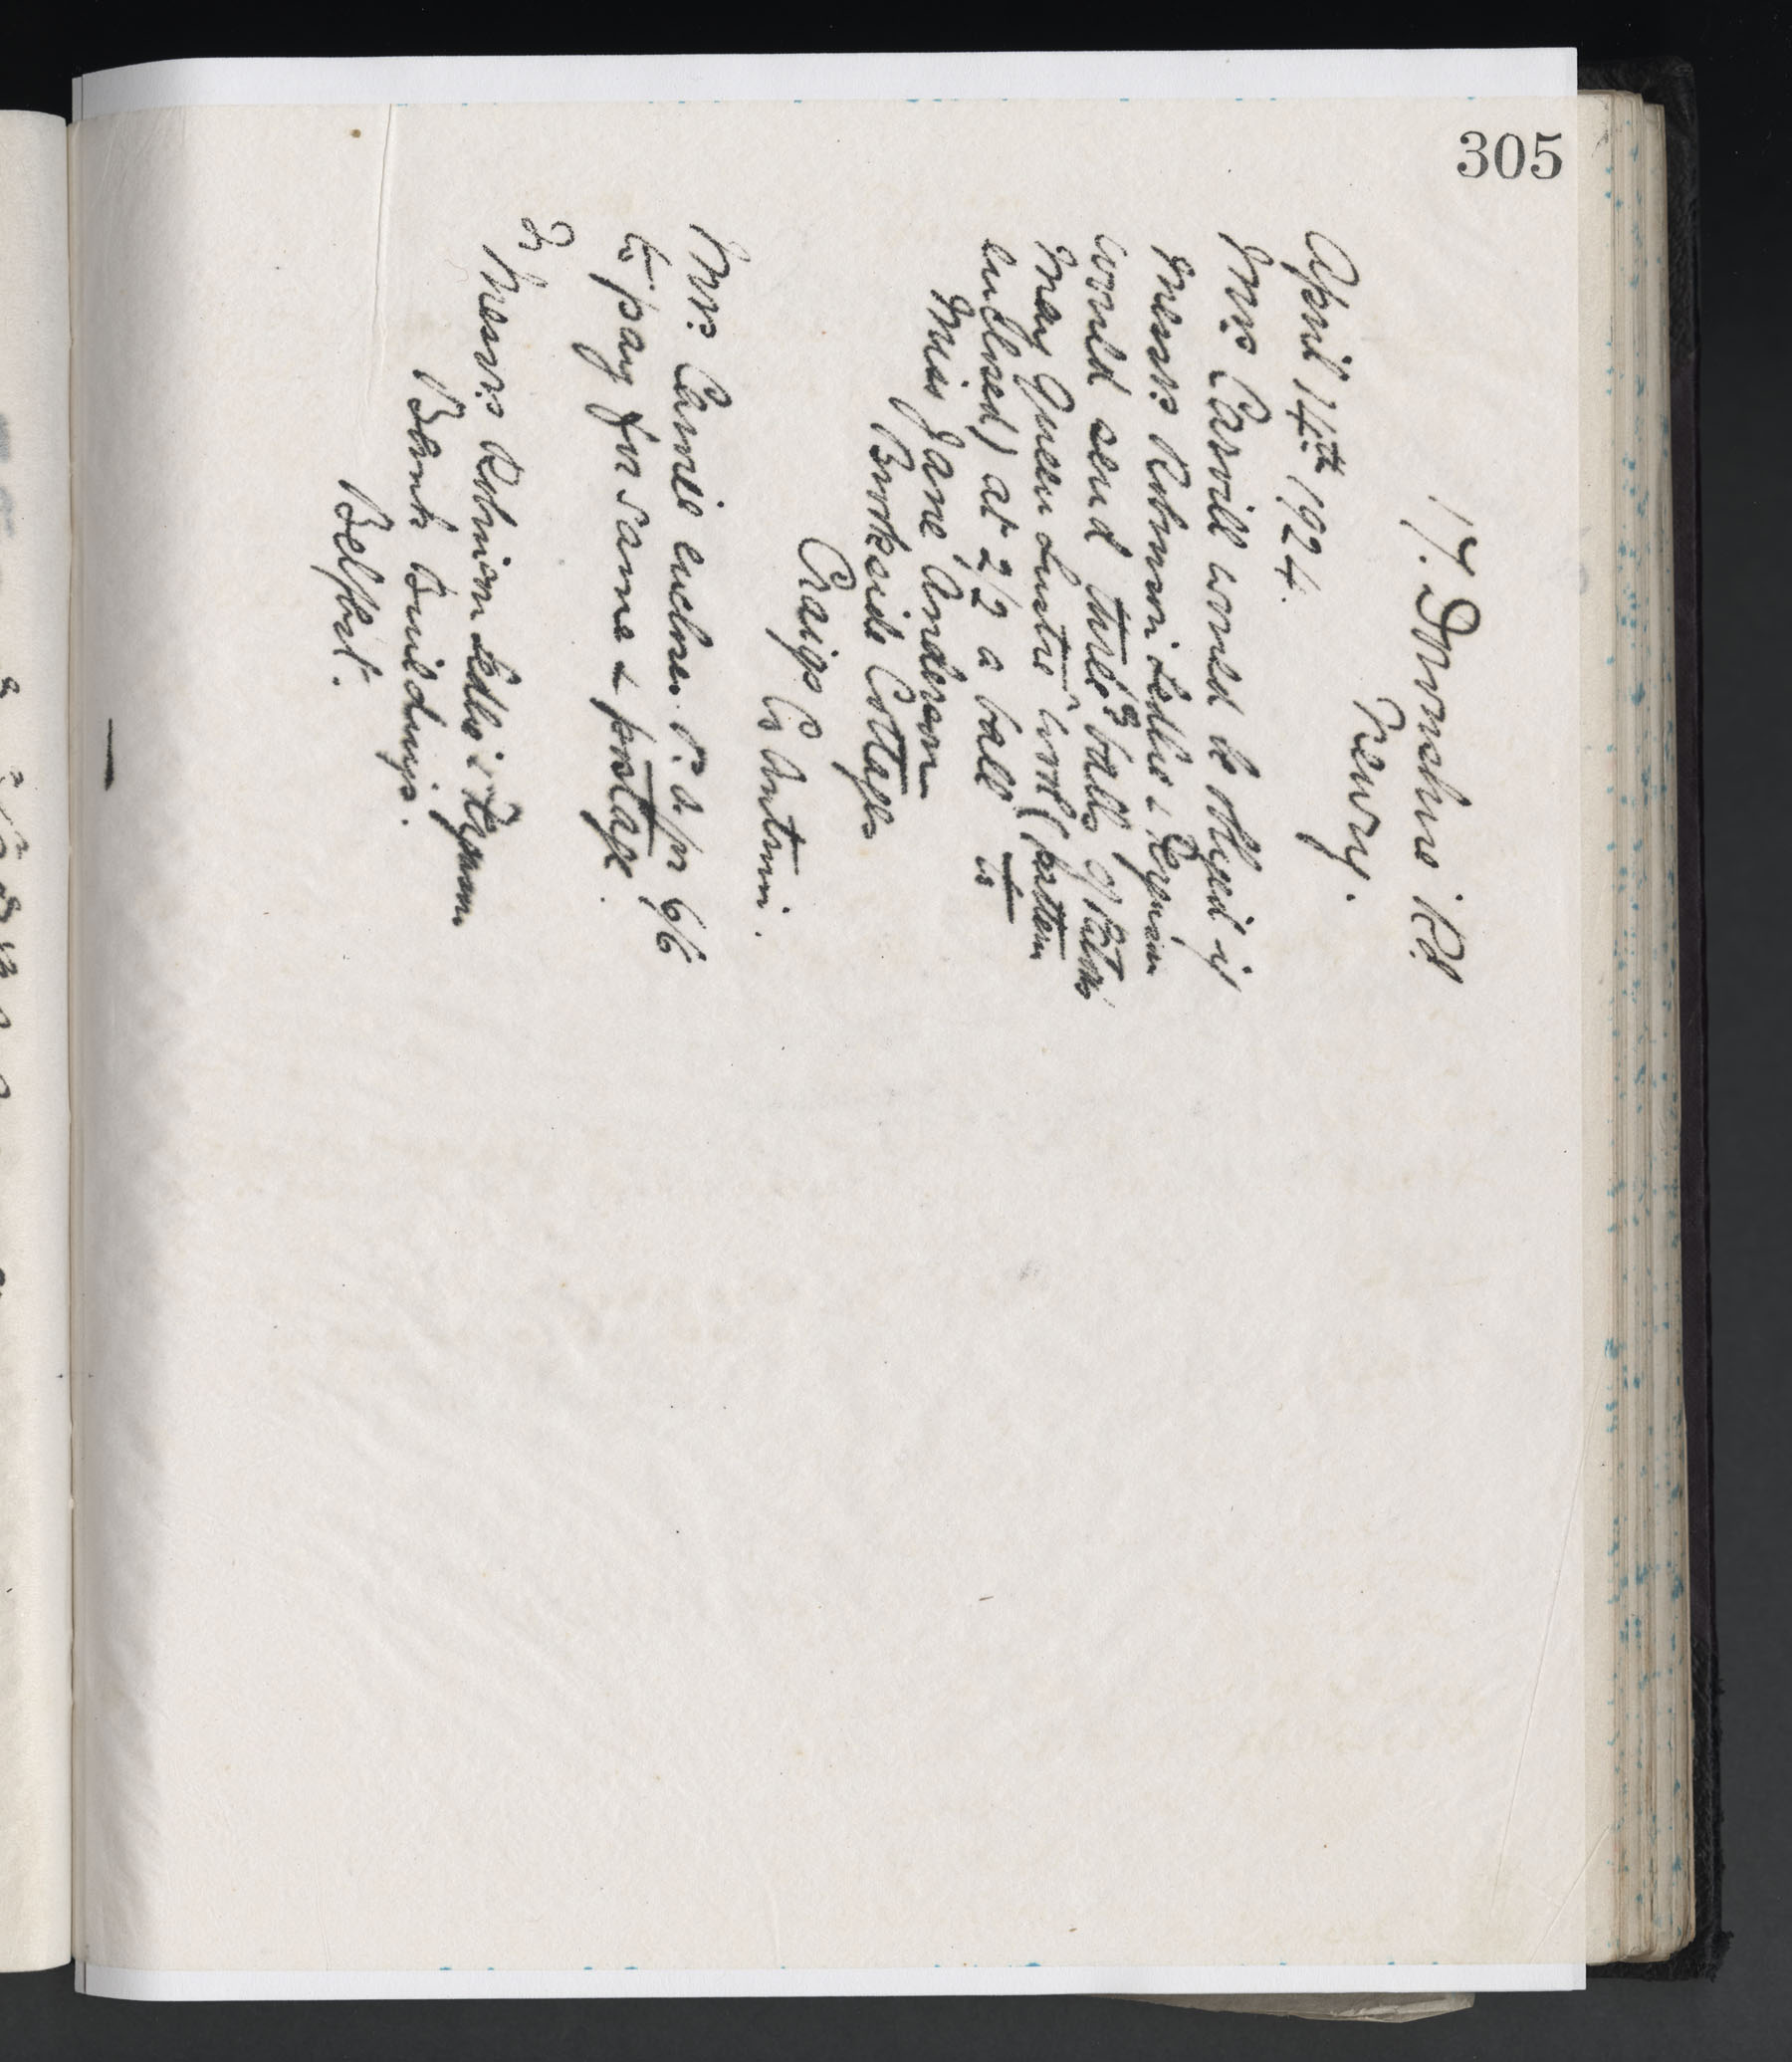 305
17. Downshire Rd
Newry.
April 14th 1924.
Mrs Carvill would be obliged if
Messrs Robinson Ledlie &
would send three 3 balls of
May Queen Lustre wool (pattern
enclosed) at 2/2 a ball to
Miss Jane Anderson
Brookside Cottages
Craigs Co Antrim.
Mrs Carvill encloses P.O. for 6/6
to pay for same & postage.
To
Messrs Robinson Ledlie &
Bank Buildings.
Belfast.